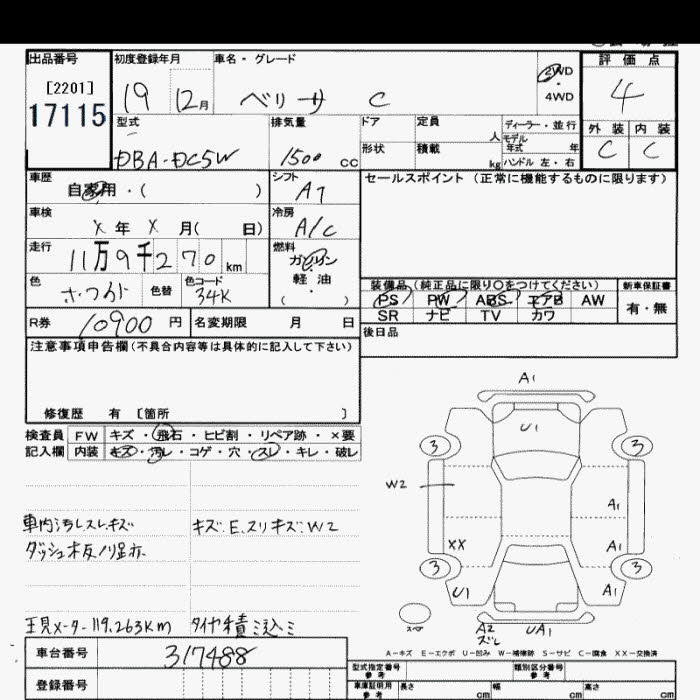 出品番号 初度登録年月 車名・グレード 2WD ・ 4WD 評価点
[2201]
17115
19 12月 ベリーサ C 4
型式 排気量 ドア 定員 人 ディーラー・並行 外装 内装
モデル年式 年
DBA-DC5W 1500 CC 形状 積載 kg ハンドル 左・右 C C
車歴 自家用・( ) シフト AT セールスポイント(正常に機能するものに限ります)
車検 X年 X月( 日) 冷房 A/C
走行 11万9千270km 燃料 ガソリン・軽油・( )
色 ホワイト 色替 色コード 34K
装備品(純正品に限り〇をつけてください) 新車保証書
PS PW ABS エアB AW 有・無
SR ナビ TV カワ
R券 10900円 名変期限 月 日
後日品
注意事項申告欄(不具合内容等は具体的に記入して下さい)
修復歴 有 [箇所 ]
検査員 FW キズ・飛石・ヒビ割・リペア跡・×要
記入欄 内装 キズ・汚レ・コゲ・穴・スレ・キレ・破レ
A1
U1
3 3
W2
A1
XX A1
3 3
U1 A1
A2 UA1
車内汚レスレキズ キズ.E.スリキズ.W2
ダッシュ板ノリ跡
現メーター119.263Km タイヤ積ミ込ミ
A-キズ E-エクボ U-凹み W-補修跡 S-サビ C-腐食 XX-交換済
車台番号 317488
登録番号
型式指定番号 参考 類別区分番号 参考
車庫証明用 参考 長さ cm 幅 cm 高さ cm